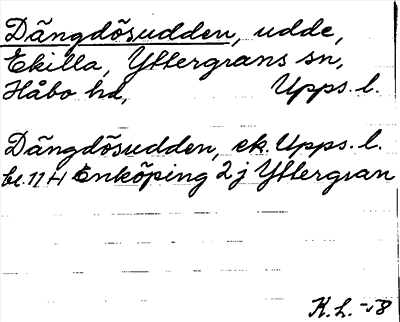 Dängdösudden, udde,
Ekilla, Yttergrans sn,
Håbo hd, Upps. l.
Dängdösudden, ek. Upps. l.
bl. 11 H Enköping 2 j Yttergran
K. L. -58